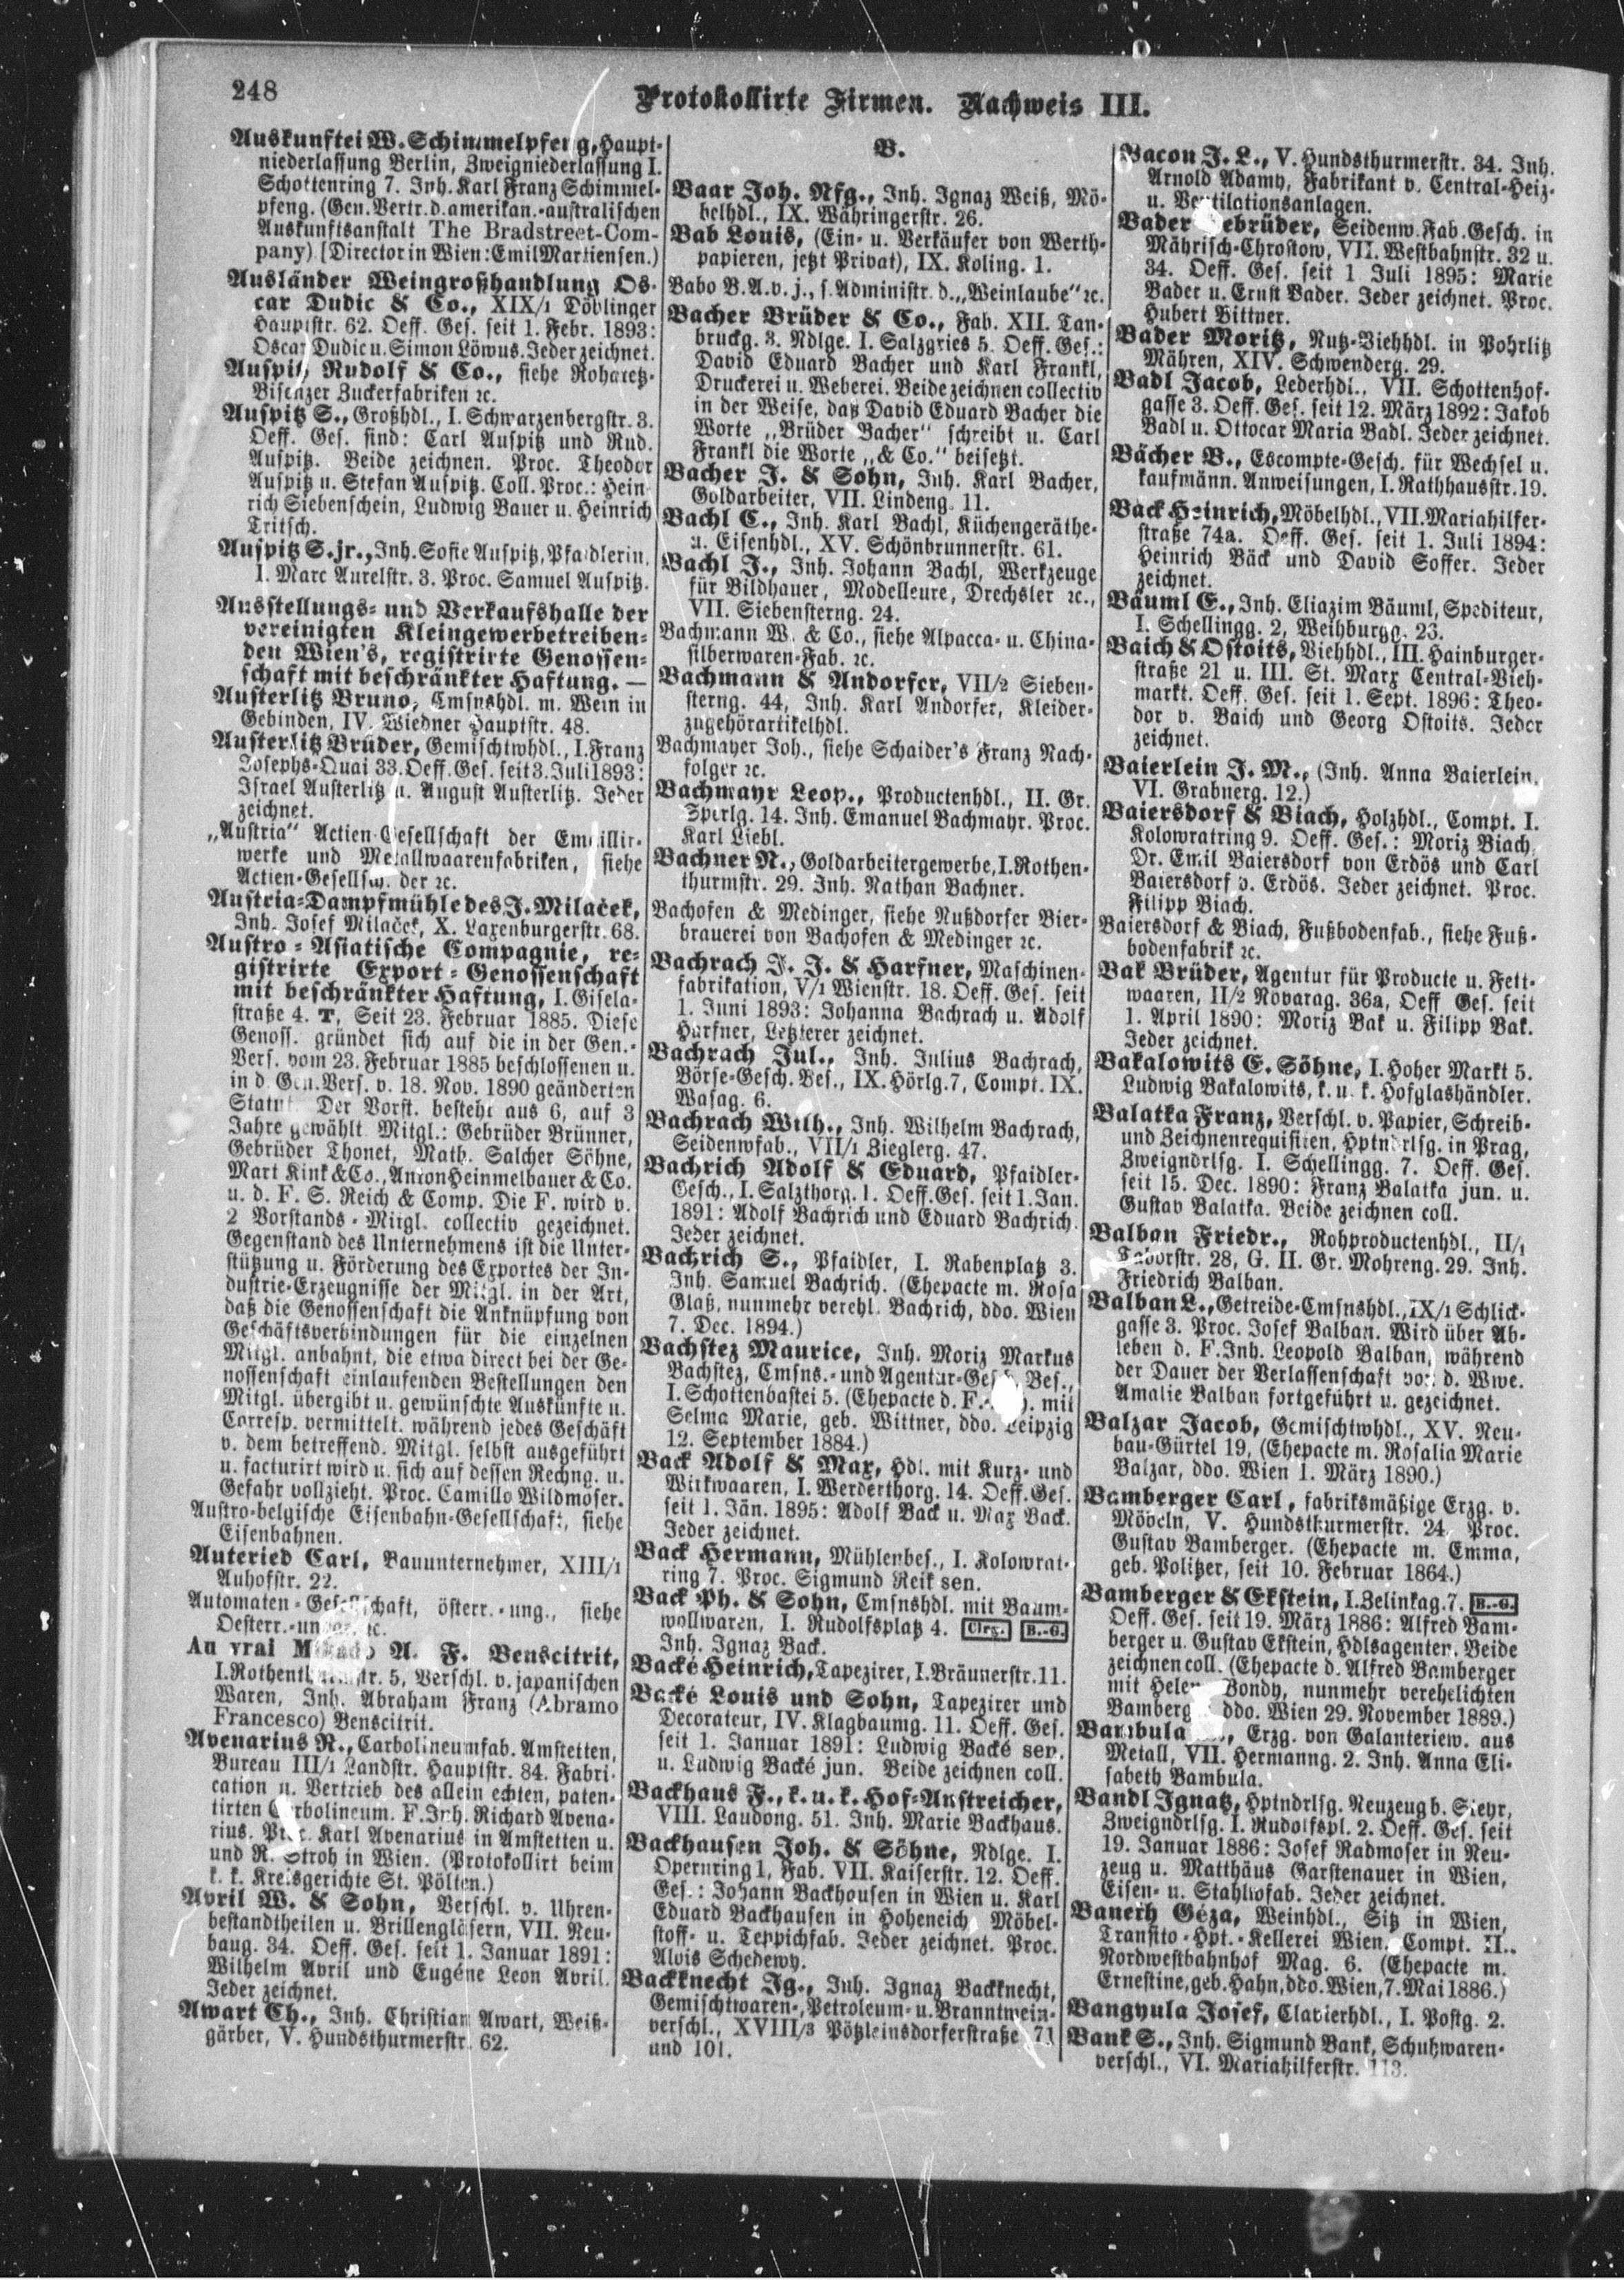 248
Protokollirte Firmen. Nachweis III.
Auskunftei W. Schimmelpfeng, Haupt-
niederlassung Berlin, Zweigniederlassung I.
Schottenring 7. Inh. Karl Franz Schimmel-
pfeng. (Gen. Vertr. d. amerikan.-australischen
Auskunftsanstalt The Bradstreet-Com-
pany) [Director in Wien: Emil Martiensen.)
Ausländer Weingroßhandlung Os-
car Dudic & Co., XIX/1 Döblinger
Hauptstr. 62. Oeff. Ges. seit 1. Febr. 1893:
Oscar Dudic u. Simon Löwus. Jeder zeichnet.
Auspitz Rudolf & Co., siehe Rohatetz-
Bisenzer Zuckerfabriken ꝛc.
Auspitz S., Großhdl., I. Schwarzenbergstr. 3.
Oeff. Ges. sind: Carl Auspitz und Rud.
Auspitz. Beide zeichnen. Proc. Theodor
Auspitz u. Stefan Auspitz. Coll. Proc.: Hein-
rich Siebenschein, Ludwig Bauer u. Heinrich
Tritsch.
Auspitz S. jr., Inh. Sofie Auspitz, Pfaidlerin,
I. Marc Aurelstr. 3. Proc. Samuel Auspitz.
Ausstellungs- und Verkaufshalle der
vereinigten Kleingewerbetreiben-
den Wien's, registrirte Genossen-
schaft mit beschränkter Haftung. —
Austerlitz Bruno, Cmsnshdl. m. Wein in
Gebinden, IV. Wiedner Hauptstr. 48.
Austerlitz Brüder, Gemischtwhdl., I. Franz
Josephs-Quai 33. Oeff. Ges. seit 3. Juli 1893:
Israel Austerlitz u. August Austerlitz. Jeder
zeichnet.
„Austria" Actien-Gesellschaft der Emaillir-
werke und Metallwaarenfabriken, siehe
Actien-Gesellsch. der ꝛc.
Austria-Dampfmühle des J. Milaček,
Inh. Josef Milaček, X. Laxenburgerstr. 68.
Austro-Asiatische Compagnie, re-
gistrirte Export-Genossenschaft
mit beschränkter Haftung, I. Gisela-
straße 4. T, Seit 23. Februar 1885. Diese
Genoss. gründet sich auf die in der Gen.-
Vers. vom 23. Februar 1885 beschlossenen u.
in d. Gen. Vers. v. 18. Nov. 1890 geänderten
Statut. Der Vorst. besteht aus 6, auf 3
Jahre gewählt. Mitgl.: Gebrüder Brünner,
Gebrüder Thonet, Math. Salcher Söhne,
Mart Kink & Co., Anton Heinmelbauer & Co.
u. d. F. S. Reich & Comp. Die F. wird v.
2 Vorstands-Mitgl. collectiv gezeichnet.
Gegenstand des Unternehmens ist die Unter-
stützung u. Förderung des Exportes der In-
dustrie-Erzeugnisse der Mitgl. in der Art,
daß die Genossenschaft die Anknüpfung von
Geschäftsverbindungen für die einzelnen
Mitgl. anbahnt, die etwa direct bei der Ge-
nossenschaft einlaufenden Bestellungen den
Mitgl. übergibt u. gewünschte Auskünfte u.
Corresp. vermittelt, während jedes Geschäft
v. dem betreffend. Mitgl. selbst ausgeführt
u. facturirt wird u. sich auf dessen Rechng. u.
Gefahr vollzieht. Proc. Camillo Wildmoser.
Austro-belgische Eisenbahn-Gesellschaft, siehe
Eisenbahnen.
Auteried Carl, Bauunternehmer, XIII/1
Auhofstr. 22.
Automaten-Gesellschaft, österr.-ung., siehe
Oesterr.-ungar. ꝛc.
Au vrai Mikado A. F. Benscitrit,
I. Rothenthurmstr. 5, Verschl. v. japanischen
Waren, Inh. Abraham Franz (Abramo
Francesco) Benscitrit.
Avenarius R., Carbolineumfab. Amstetten,
Bureau III/1 Landstr. Hauptstr. 84. Fabri-
cation u. Vertrieb des allein echten, paten-
tirten Carbolineum. F. Inh. Richard Avena-
rius. Proc. Karl Avenarius in Amstetten u.
und R. Stroh in Wien. (Protokollirt beim
k. k. Kreisgerichte St. Pölten.)
Avril W. & Sohn, Verschl. v. Uhren-
bestandtheilen u. Brillengläsern, VII. Neu-
baug. 34. Oeff. Ges. seit 1. Januar 1891:
Wilhelm Avril und Eugéne Leon Avril.
Jeder zeichnet.
Awart Ch., Inh. Christian Awart, Weiß-
gärber, V. Hundsthurmerstr. 62.
B.
Baar Joh. Nfg., Inh. Ignaz Weiß, Mö-
belhdl., IX. Währingerstr. 26.
Bab Louis, (Ein- u. Verkäufer von Werth-
papieren, jetzt Privat), IX. Koling. 1.
Babo B. A. v. j., s. Administr. d. „Weinlaube" ꝛc.
Bacher Brüder & Co., Fab. XII. Tan-
bruckg. 3. Ndlge. I. Salzgries 5. Oeff. Ges.:
David Eduard Bacher und Karl Frankl,
Druckerei u. Weberei. Beide zeichnen collectiv
in der Weise, daß David Eduard Bacher die
Worte „Brüder Bacher" schreibt u. Carl
Frankl die Worte „& Co." beisetzt.
Bacher J. & Sohn, Inh. Karl Bacher,
Goldarbeiter, VII. Lindeng. 11.
Bachl C., Inh. Karl Bachl, Küchengeräthe-
u. Eisenhdl., XV. Schönbrunnerstr. 61.
Bachl J., Inh. Johann Bachl, Werkzeuge
für Bildhauer, Modelleure, Drechsler ꝛc.,
VII. Siebensterng. 24.
Bachmann W. & Co., siehe Alpacca- u. China-
silberwaren-Fab. ꝛc.
Bachmann & Andorfer, VII/2 Sieben-
sterng. 44, Inh. Karl Andorfer, Kleider-
zugehörartikelhdl.
Bachmayer Joh., siehe Schaider's Franz Nach-
folger ꝛc.
Bachmayr Leop., Productenhdl., II. Gr.
Sperlg. 14. Inh. Emanuel Bachmayr. Proc.
Karl Liebl.
Bachner N., Goldarbeitergewerbe, I. Rothen-
thurmstr. 29. Inh. Nathan Bachner.
Bachofen & Medinger, siehe Nußdorfer Bier-
brauerei von Bachofen & Medinger ꝛc.
Bachrach J. J. & Harfner, Maschinen-
fabrikation, V/1 Wienstr. 18. Oeff. Ges. seit
1. Juni 1893: Johanna Bachrach u. Adolf
Harfner, Letzterer zeichnet.
Bachrach Jul., Inh. Julius Bachrach,
Börse-Gesch. Bes., IX. Hörlg. 7, Compt. IX.
Wasag. 6.
Bachrach Wilh., Inh. Wilhelm Bachrach,
Seidenwfab., VII/1 Zieglerg. 47.
Bachrich Adolf & Eduard, Pfaidler-
Gesch., I. Salzthorg. 1. Oeff. Ges. seit 1. Jan.
1891: Adolf Bachrich und Eduard Bachrich.
Jeder zeichnet.
Bachrich S., Pfaidler, I. Rabenplatz 3.
Inh. Samuel Bachrich. (Ehepacte m. Rosa
Glaß, nunmehr verehl. Bachrich, ddo. Wien
7. Dec. 1894.)
Bachstez Maurice, Inh. Moriz Markus
Bachstez, Cmsns.- und Agentur-Gesch. Bes.,
I. Schottenbastei 5. (Ehepacte d. F. mit
Selma Marie, geb. Wittner, ddo. Leipzig
12. September 1884.)
Back Adolf & Max, Hdl. mit Kurz- und
Wirkwaaren, I. Werderthorg. 14. Oeff. Ges.
seit 1. Jän. 1895: Adolf Back u. Max Back.
Jeder zeichnet.
Back Hermann, Mühlenbes., I. Kolowrat-
ring 7. Proc. Sigmund Reik sen.
Back Ph. & Sohn, Cmsnshdl. mit Baum-
wollwaren, I. Rudolfsplatz 4. Clrg. B.-G.
Inh. Ignaz Back.
Backé Heinrich, Tapezirer, I. Bräunerstr. 11.
Backé Louis und Sohn, Tapezirer und
Decorateur, IV. Klagbaumg. 11. Oeff. Ges.
seit 1. Januar 1891: Ludwig Backé sen.
u. Ludwig Backé jun. Beide zeichnen coll.
Backhaus F., k. u. k. Hof-Anstreicher,
VIII. Laudong. 51. Inh. Marie Backhaus.
Backhausen Joh. & Söhne, Ndlge. I.
Opernring 1, Fab. VII. Kaiserstr. 12. Oeff.
Ges.: Johann Backhousen in Wien u. Karl
Eduard Backhausen in Hoheneich, Möbel-
stoff- u. Teppichfab. Jeder zeichnet. Proc.
Alois Schedewy.
Backknecht Ig., Inh. Ignaz Backknecht,
Gemischtwaren-, Petroleum- u. Branntwein-
verschl., XVIII/3 Pötzleinsdorferstraße 71
und 101.
Bacon J. L., V. Hundsthurmerstr. 34. Inh.
Arnold Adamy, Fabrikant v. Central-Heiz-
u. Ventilationsanlagen.
Bader Gebrüder, Seidenw. Fab. Gesch. in
Mährisch-Chrostow, VII. Westbahnstr. 32 u.
34. Oeff. Ges. seit 1. Juli 1895: Marie
Bader u. Ernst Bader. Jeder zeichnet. Proc.
Hubert Bittner.
Bader Moritz, Nutz-Viehhdl. in Pohrlitz
Mähren, XIV. Schwenderg. 29.
Badl Jacob, Lederhdl., VII. Schottenhof-
gasse 3. Oeff. Ges. seit 12. März 1892: Jakob
Badl u. Ottocar Maria Badl. Jeder zeichnet.
Bächer B., Escompte-Gesch. für Wechsel u.
kaufmänn. Anweisungen, I. Rathhausstr. 19.
Bäck Heinrich, Möbelhdl., VII. Mariahilfer-
straße 74a. Oeff. Ges. seit 1. Juli 1894:
Heinrich Bäck und David Soffer. Jeder
zeichnet.
Bäuml E., Inh. Eliazim Bäuml, Spediteur,
I. Schellingg. 2, Weihburgg. 23.
Baich & Ostoits, Viehhdl., III. Hainburger-
straße 21 u. III. St. Marx Central-Vieh-
markt. Oeff. Ges. seit 1. Sept. 1896: Theo-
dor v. Baich und Georg Ostoits. Jeder
zeichnet.
Baierlein J. M., (Inh. Anna Baierlein,
VI. Grabnerg. 12.)
Baiersdorf & Biach, Holzhdl., Compt. I.
Kolowratring 9. Oeff. Ges.: Moriz Biach,
Dr. Emil Baiersdorf von Erdös und Carl
Baiersdorf v. Erdös. Jeder zeichnet. Proc.
Filipp Biach.
Baiersdorf & Biach, Fußbodenfab., siehe Fuß-
bodenfabrik ꝛc.
Bak Brüder, Agentur für Producte u. Fett-
waaren, II/2 Novarag. 36a, Oeff Ges. seit
1. April 1890: Moriz Bak u. Filipp Bak.
Jeder zeichnet.
Bakalowits E. Söhne, I. Hoher Markt 5.
Ludwig Bakalowits, k. u. k. Hofglashändler.
Balatka Franz, Verschl. v. Papier, Schreib-
und Zeichnenrequisiten, Hptndrlsg. in Prag,
Zweigndrlsg. I. Schellingg. 7. Oeff. Ges.
seit 15. Dec. 1890: Franz Balatka jun. u.
Gustav Balatka. Beide zeichnen coll.
Balban Friedr., Rohproductenhdl., II/1
Taborstr. 28, G. II. Gr. Mohreng. 29. Inh.
Friedrich Balban.
Balban L., Getreide-Cmsnshdl., IX/1 Schlick-
gasse 3. Proc. Josef Balban. Wird über Ab-
leben d. F. Inh. Leopold Balban, während
der Dauer der Verlassenschaft von d. Wwe.
Amalie Balban fortgeführt u. gezeichnet.
Balzar Jacob, Gemischtwhdl., XV. Neu-
bau-Gürtel 19, (Ehepacte m. Rosalia Marie
Balzar, ddo. Wien 1. März 1890.)
Bamberger Carl, fabriksmäßige Erzg. v.
Möbeln, V. Hundsthurmerstr. 24. Proc.
Gustav Bamberger. (Ehepacte m. Emma,
geb. Politzer, seit 10. Februar 1864.)
Bamberger & Ekstein, I. Zelinkag. 7. B.-G.
Oeff. Ges. seit 19. März 1886: Alfred Bam-
berger u. Gustav Ekstein, Hdlsagenten. Beide
zeichnen coll. (Ehepacte d. Alfred Bamberger
mit Helene Bondy, nunmehr verehelichten
Bamberg ddo. Wien 29. November 1889.)
Bambula Erzg. von Galanteriew. aus
Metall, VII. Hermanng. 2. Inh. Anna Eli-
sabeth Bambula.
Bandl Ignatz, Hptndrlsg. Neuzeug b. Steyr,
Zweigndrlsg. I. Rudolfspl. 2. Oeff. Ges. seit
19. Januar 1886: Josef Radmoser in Neu-
zeug u. Matthäus Garstenauer in Wien,
Eisen- u. Stahlwfab. Jeder zeichnet.
Baneth Géza, Weinhdl., Sitz in Wien,
Transito-Hpt.-Kellerei Wien, Compt. II.,
Nordwestbahnhof Mag. 6. (Ehepacte m.
Ernestine, geb. Hahn, ddo. Wien, 7. Mai 1886.)
Bangyula Josef, Clavierhdl., I. Postg. 2.
Bank S., Inh. Sigmund Bank, Schuhwaren-
verschl., VI. Mariahilferstr. 113.